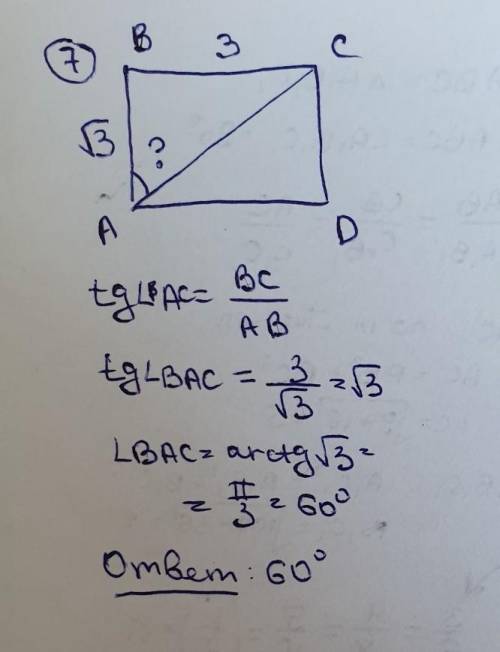 7
B 3 C
√3 ?
A D
tg∠BAC = BC/AB
tg∠BAC = 3/√3 = √3
∠BAC = arctg√3 =
= π/3 = 60°
Ответ: 60°